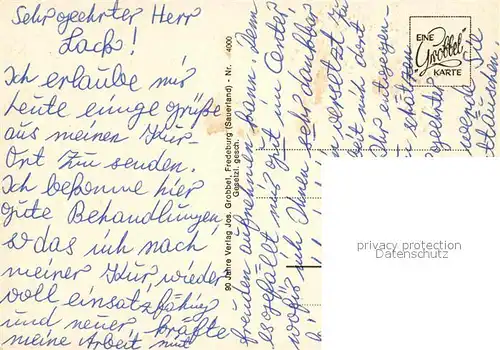 Sehr geehrter Herr
Lack!
Ich erlaube mir
heute einige Grüße
aus meinen Kur-
Ort zu senden.
Ich bekomme hier
gute Behandlungen,
so das ich nach
meiner Kur wieder
voll einsatzfähig
und neuer Kräfte
meine Arbeit mit
freuden aufnehmen kann. Denn
es gefällt mir gut im Center,
wofür ich Ihnen sehr dankbar
versetzt zu
mich dort
Ihr entgegen-
schätzen
geehrter
werde Sie
90 Jahre Verlag Jos. Grobbel, Fredeburg (Sauerland) - Nr. 4000
Gesetzl. gesch.
EINE
"Grobbel"
KARTE
privacy protection
Datenschutz